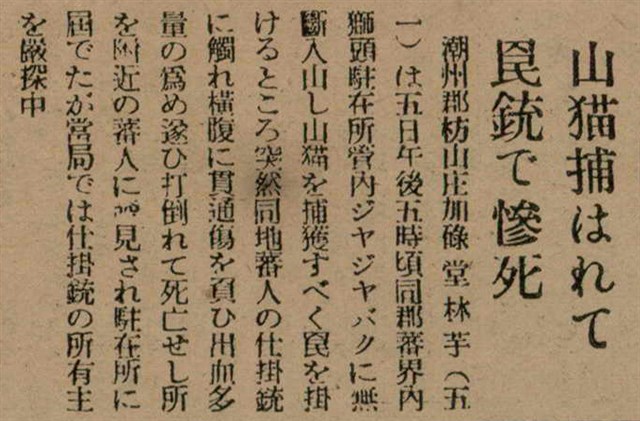 山猫捕はれて
罠銃で惨死
潮州郡枋山庄加碌堂林芋(五
一)は五日午後五時頃同郡蕃界内
獅頭駐在所管内ジヤジヤバクに無
斷入山し山猫を捕獲すべく罠を掛
けるところ突然同地蕃人の仕掛銃
に觸れ横腹に貫通傷を負ひ出血多
量の爲め遂ひ打倒れて死亡せし所
を附近の蕃人に見され駐在所に
屆でたが當局では仕掛銃の所有主
を嚴探中